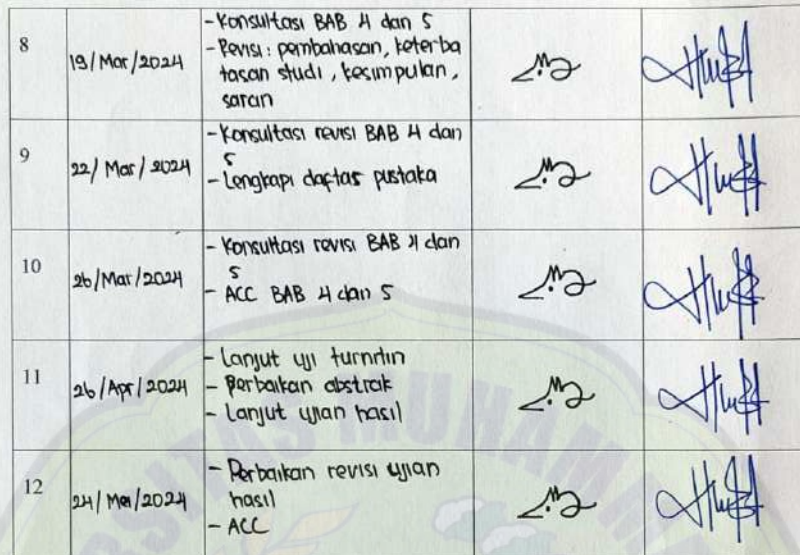 8
19/Mar/2024
- Konsultasi BAB 4 dan 5
- Revisi: pembahasan, keterba
tasan studi, kesimpulan,
saran
9
22/Mar/2024
- Konsultasi revisi BAB 4 dan
5
- Lengkapi daftar pustaka
10
26/Mar/2024
- Konsultasi revisi BAB 4 dan
5
- ACC BAB 4 dan 5
11
26/Apr/2024
- Lanjut uji turnitin
- Perbaikan abstrak
- Lanjut ujian hasil
12
24/Mei/2024
- Perbaikan revisi ujian
hasil
- ACC
SITAS MUHAMM